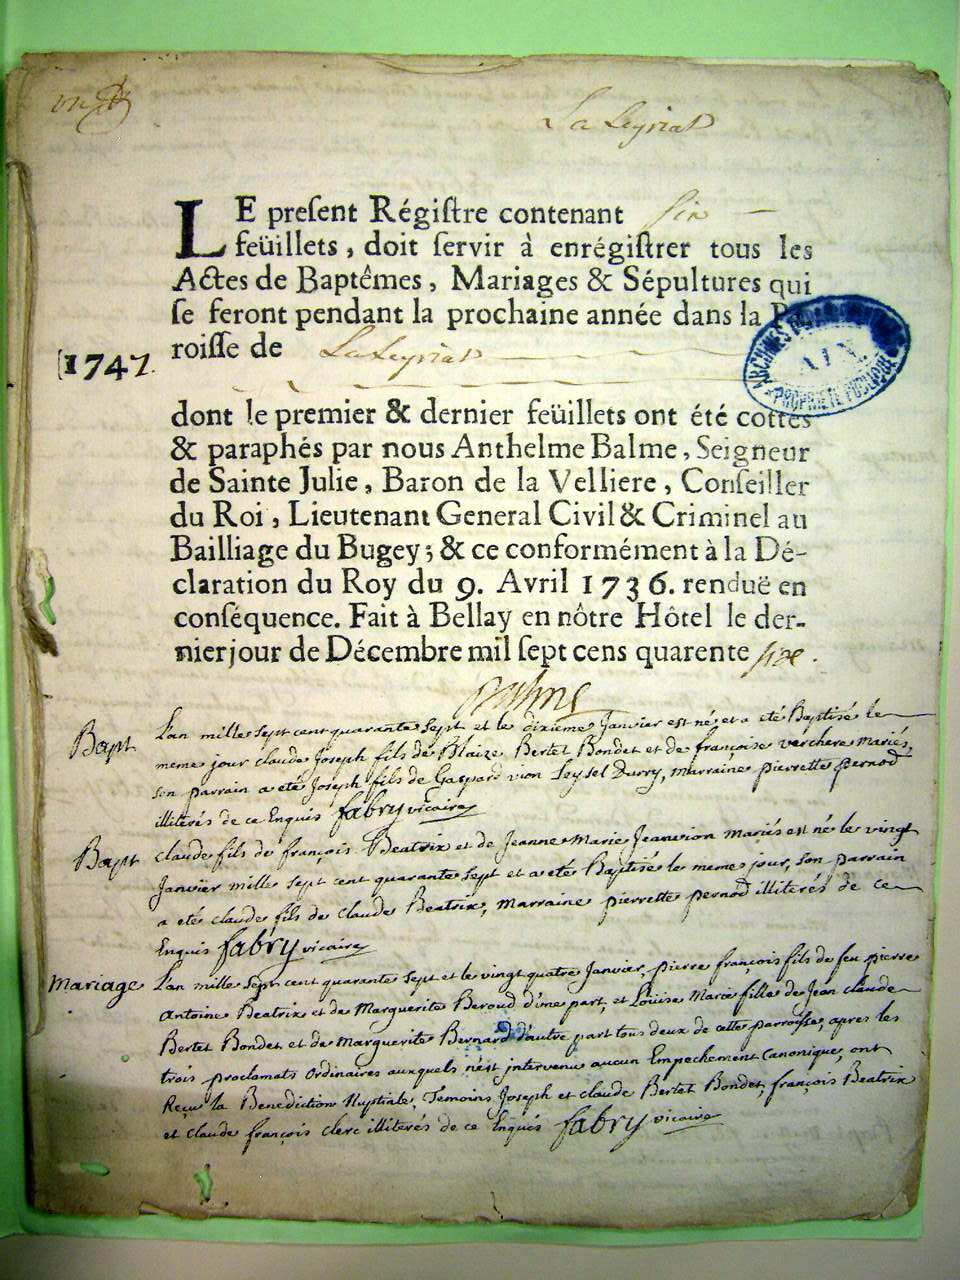 La Leyriat
LE present Régistre contenant six
feüillets, doit servir à enrégistrer tous les
Actes de Baptêmes, Mariages & Sépultures qui
se feront pendant la prochaine année dans la Pa-
roisse de La Leyriat
1747.
ARCHIVES AIN
PROPRIÉTÉ PUBLIQUE
dont le premier & dernier feüillets ont été cottés
& paraphés par nous Anthelme Balme, Seigneur
de Sainte Julie, Baron de la Velliere, Conseiller
du Roi, Lieutenant General Civil & Criminel au
Bailliage du Bugey; & ce conformément à la Dé-
claration du Roy du 9. Avril 1736. renduë en
conséquence. Fait à Bellay en nôtre Hôtel le der-
nier jour de Décembre mil sept cens quarente six.
Balme
Bapt Lan mille sept cent quarante sept et le dixieme Janvier est né et a été Baptisé le
meme jour claude Joseph fils de Blaize Bertet Bondet et de françoise verchere Mariés,
son parrain a eté Joseph fils de Gaspard vion Leysel Durry, marraine pierrette pernod
illiterés de ce Enquis fabry vicaire
Bapt claude fils de françois Beatrix et de Jeanne Marie Jeanvion mariés est né le vingt
Janvier mille sept cent quarante sept et a eté Baptisé le meme jour, son parrain
a eté claude fils de claude Beatrix, marraine pierrette pernod illiterés de ce
Enquis fabry vicaire
Mariage Lan mille sept cent quarante sept et le vingt quatre Janvier, pierre françois fils de feu pierre
Antoine Beatrix et de Marguerite Beroud d'une part, et Louise Marie fille de Jean claude
Bertet Bondet et de Marguerite Bernard d'autre part tous deux de cette parroisse, apres les
trois proclamats ordinaires auxquels n'est intervenu aucun Empechement Canonique, ont
Reçu la Benediction Nuptiale, Temoins Joseph et claude Bertet Bondet, françois Beatrix
et claude françois clerc illiterés de ce Enquis fabry vicaire